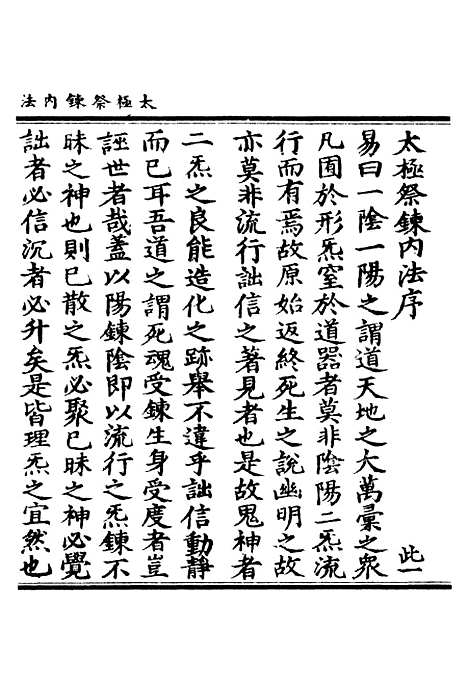 太極祭鍊內法
太極祭鍊內法序 此一
易曰一陰一陽之謂道天地之大萬彙之衆
凡囿於形炁窒於道器者莫非陰陽二炁流
行而有焉故原始返終死生之說幽明之故
亦莫非流行詘信之著見者也是故鬼神者
二炁之良能造化之跡舉不違乎詘信動靜
而已耳吾道之謂死魂受鍊生身受度者豈
誣世者哉蓋以陽鍊陰即以流行之炁鍊不
昧之神也則已散之炁必聚已昧之神必覺
詘者必信沉者必升矣是皆理炁之宜然也